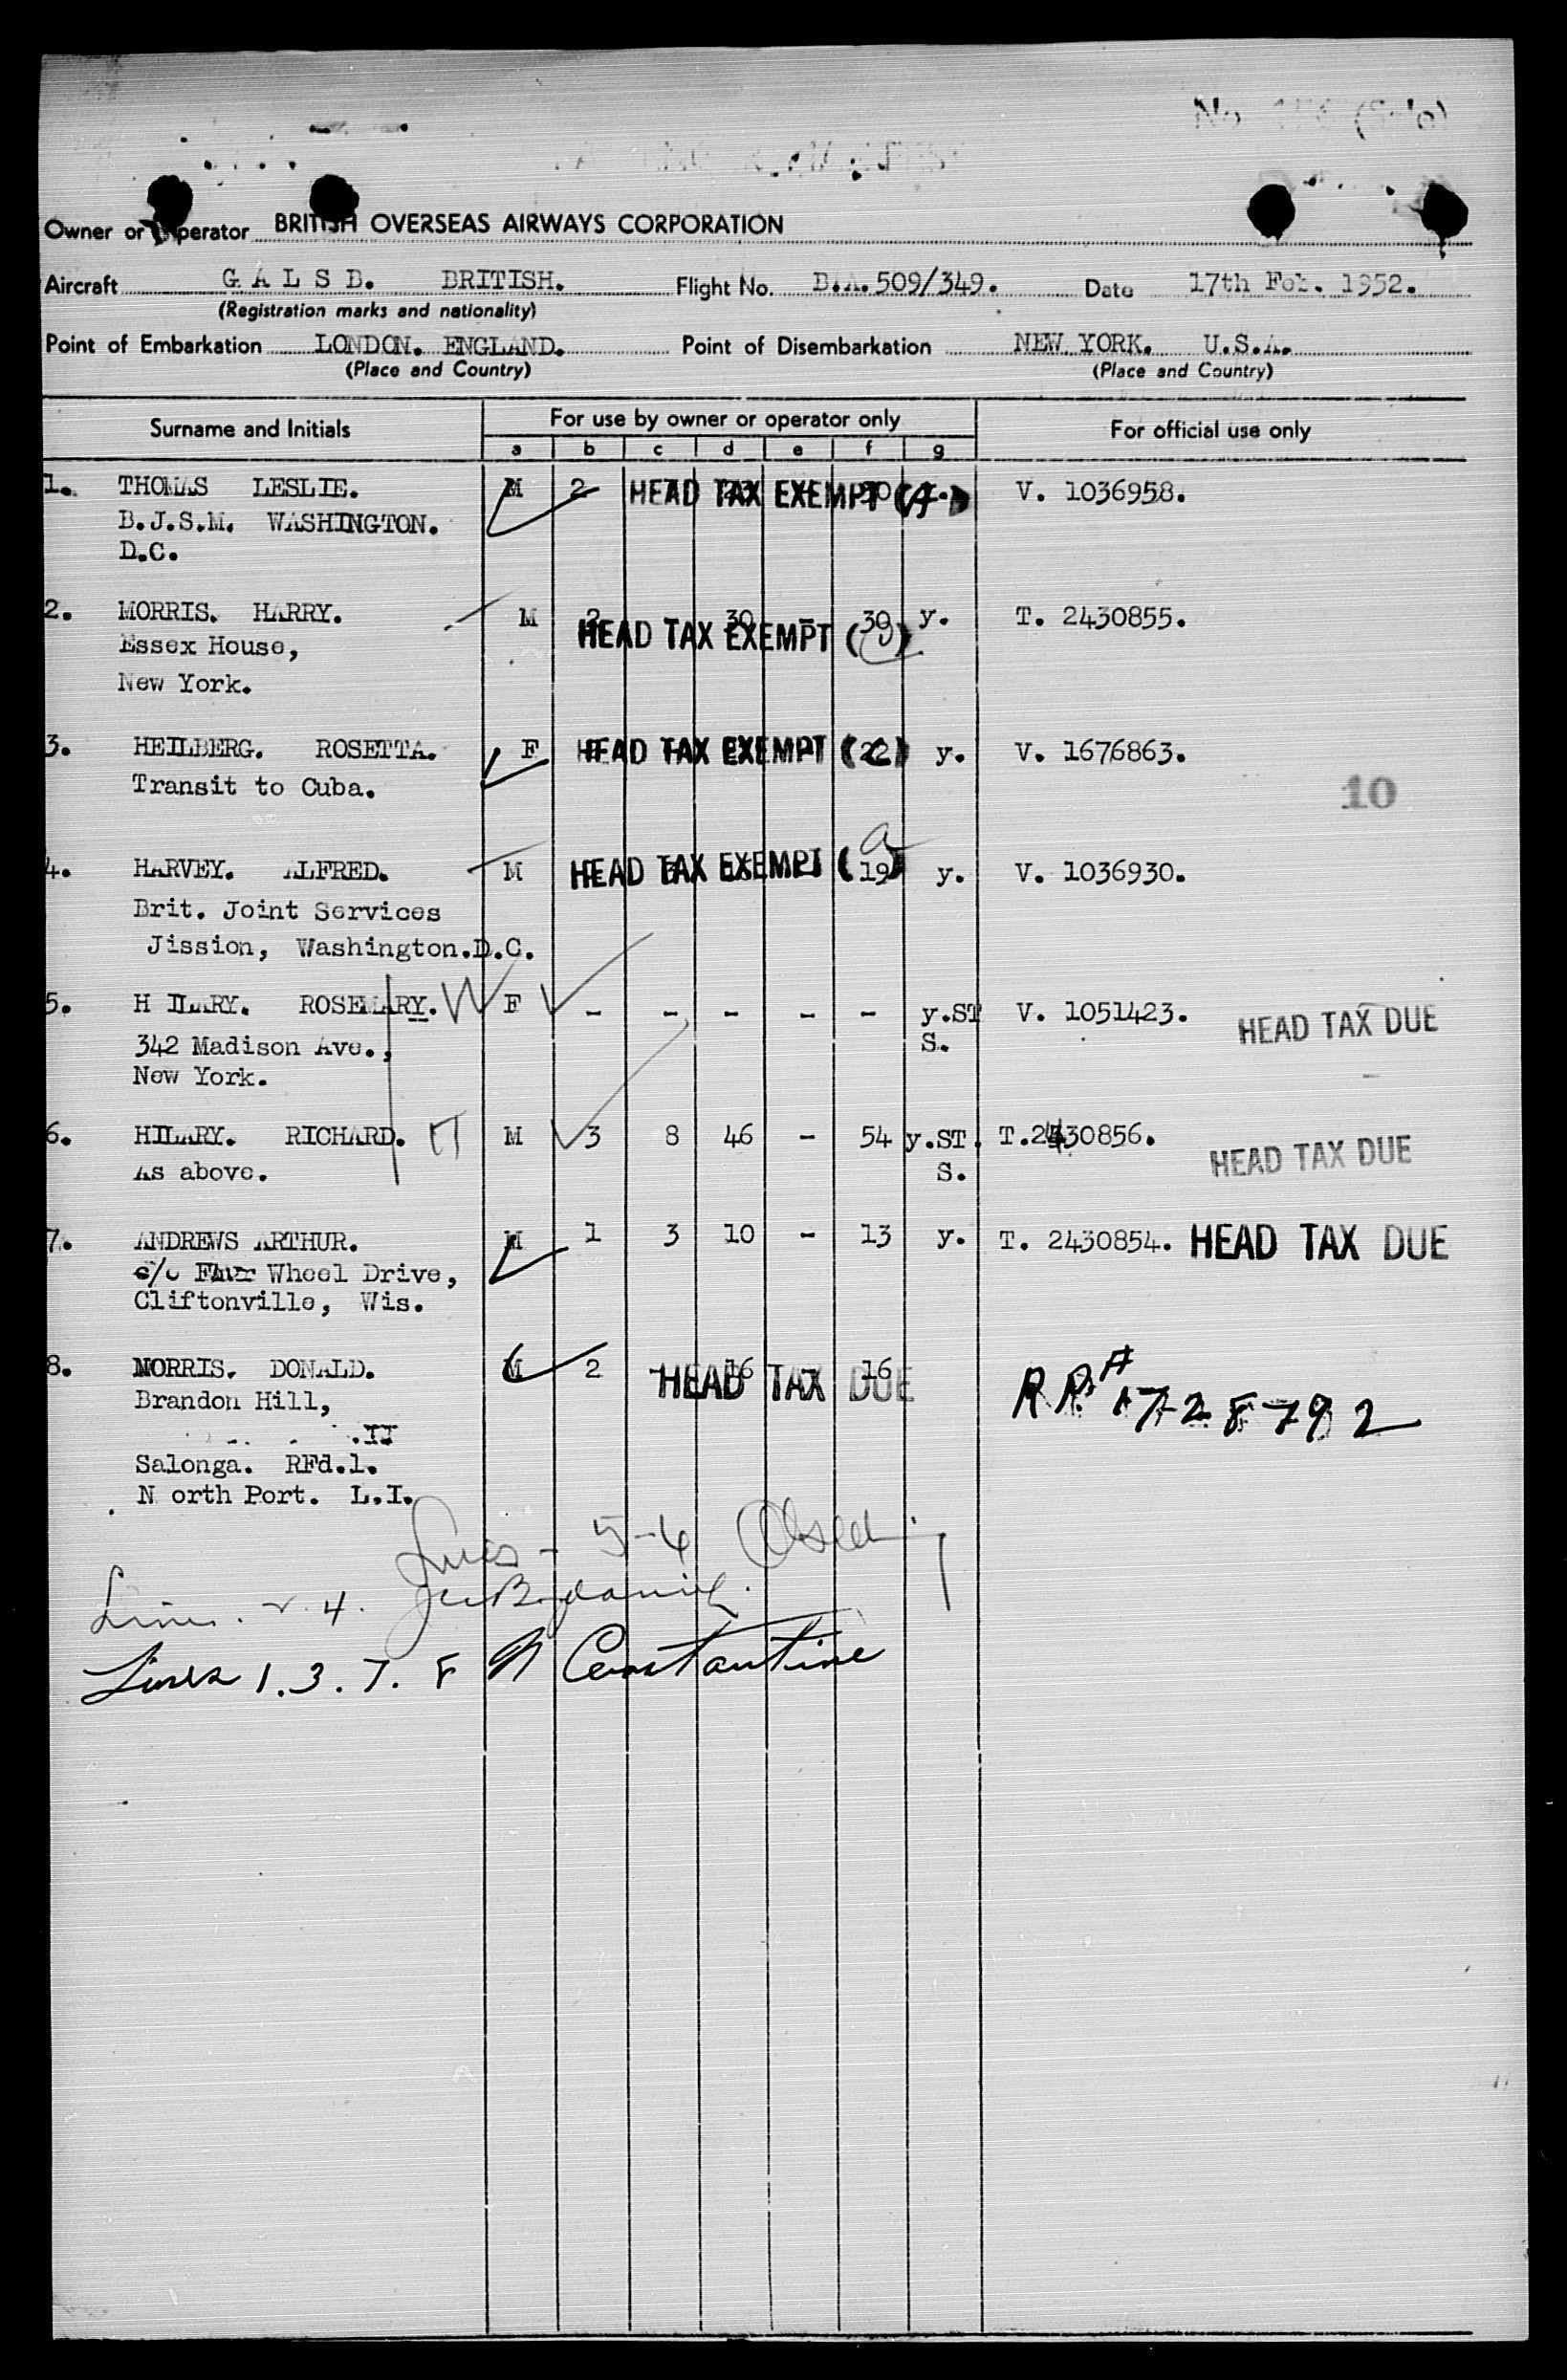 Owner or Operator BRITISH OVERSEAS AIRWAYS CORPORATION
Aircraft G A L S B. BRITISH. Flight No. B.A. 509/349. Date 17th Feb. 1952.
(Registration marks and nationality)
Point of Embarkation LONDON. ENGLAND. Point of Disembarkation NEW YORK. U.S.A.
(Place and Country) (Place and Country)
Surname and Initials For use by owner or operator only For official use only
a b c d e f g
1. THOMAS LESLIE. M 2 HEAD TAX EXEMPT (A) V. 1036958.
B.J.S.M. WASHINGTON.
D.C.
2. MORRIS. HARRY. M 2 30 - 30 y. T. 2430855.
Essex House, HEAD TAX EXEMPT ( )
New York.
3. HEILBERG. ROSETTA. F HEAD TAX EXEMPT (C) 22 y. V. 1676863.
Transit to Cuba.
10
4. HARVEY. ALFRED. M HEAD TAX EXEMPT (a) 19 y. V. 1036930.
Brit. Joint Services
Jission, Washington.D.C.
5. H ILARY. ROSEMARY. F - - - - - y.ST V. 1051423. HEAD TAX DUE
342 Madison Ave., S.
New York.
6. HILARY. RICHARD. M 3 8 46 - 54 y.ST. T.2430856. HEAD TAX DUE
As above. S.
7. ANDREWS ARTHUR. M 1 3 10 - 13 y. T. 2430854. HEAD TAX DUE
c/o Four Wheel Drive,
Cliftonville, Wis.
8. NORRIS. DONALD. M 2 - 16 - 16 HEAD TAX DUE RP# 1728792
Brandon Hill,
Salonga. RFd.1.
N orth Port. L.I.
Lines - 5-6
Lines 4.
Lines 1.3.7.8 N Constantine